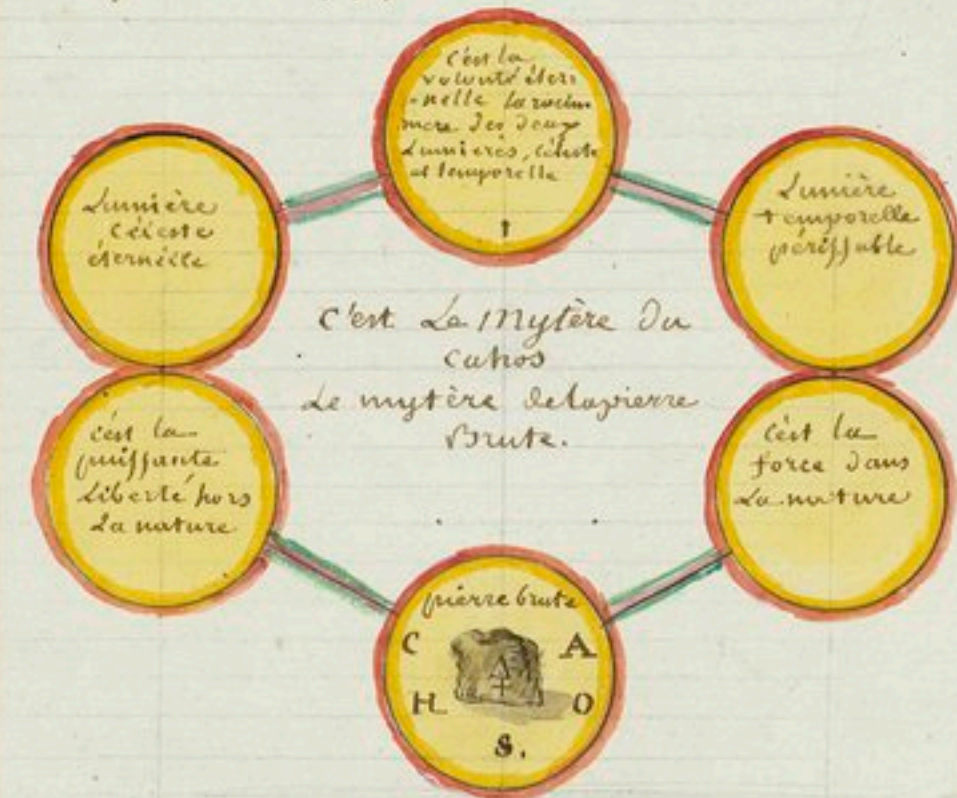 C'est la
volonté éter
-nelle la racine
mere des deux
Lumieres, céleste
et temporelle
Lumière
Céleste
éternélle
Lumière
temporelle
périssable
C'est Le Mytère Du
Cahos
Le mytère de la pierre
Brute.
C'est la
puissante
Liberté hors
La nature
C'est la
force dans
La nature
pierre brute
C A
H O
S.